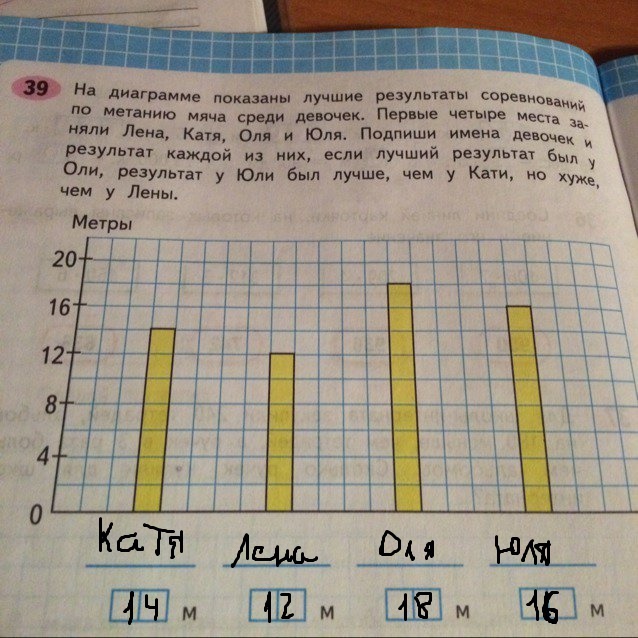 39 На диаграмме показаны лучшие результаты соревнований
по метанию мяча среди девочек. Первые четыре места за-
няли Лена, Катя, Оля и Юля. Подпиши имена девочек и
результат каждой из них, если лучший результат был у
Оли, результат у Юли был лучше, чем у Кати, но хуже,
чем у Лены.
Метры
20
16
12
8
4
0
Катя Лена Оля Юля
14 м 12 м 18 м 16 м